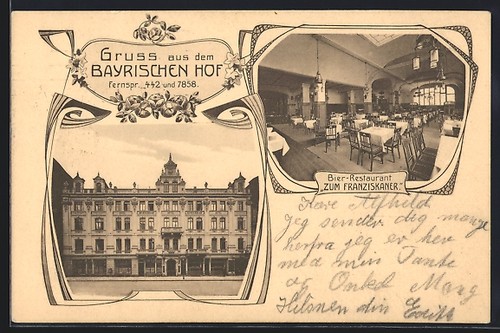 Gruss aus dem
BAYRISCHEN HOF
Fernspr. 442 und 7858.
Bier-Restaurant
"ZUM FRANZISKANER."
Kære Alfhild
jeg sender dig mange
herfra jeg er her
med min Tante
og Onkel Mang
Hilsner din